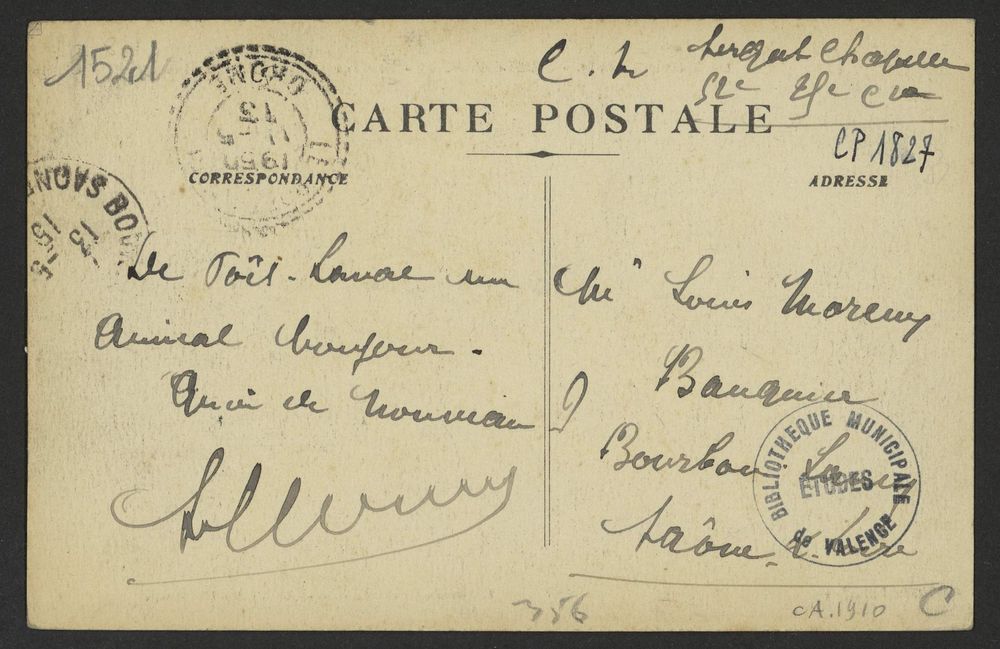 1521
C. L
Sergent Chapelle
52e 25e Cie
CARTE POSTALE
CP 1827
CORRESPONDANCE
ADRESSE
DROME
13 - 5
SAONE BO
13
15
De Toîs-Laval un
Amical bonjour.
Quoi de Nouveau ?
Mr Louis Moreux
Banquier
Bourbon Lancy
Saône & Loire
BIBLIOTHEQUE MUNICIPALE
ETUDES
de VALENCE
356
CA.1910
C